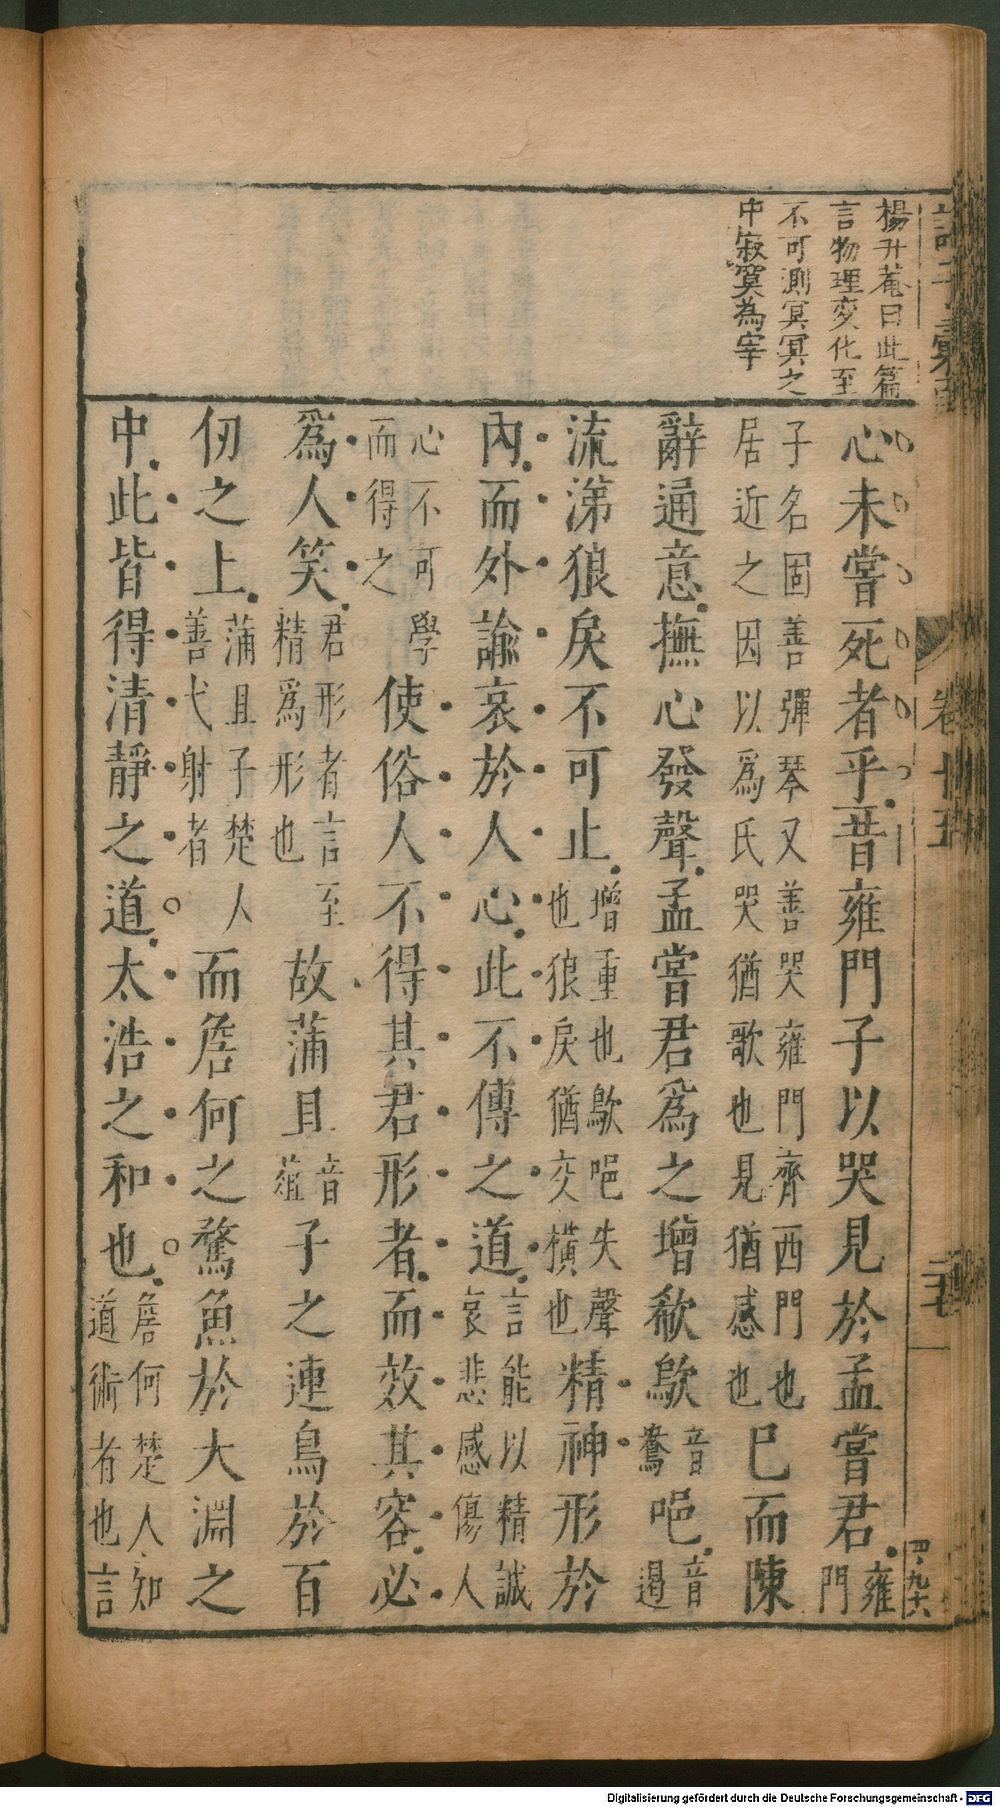 楊升菴曰此篇
言物理変化至
不可測冥冥之
中寂寞為宰
心未嘗死者乎昔雍門子以哭見於孟嘗君雍門
子名固善彈琴又善哭雍門齊西門也居近之因以爲氏哭猶歌也見猶感也已而陳
辭通意撫心發聲孟嘗君爲之增欷歍音鴦唈音遏
流涕狼戾不可止增重也歍唈失聲也狼戾猶交橫也精神形於
內而外諭哀於人心此不傳之道言能以精誠哀悲感傷人
心不可學而得之使俗人不得其君形者而效其容必
爲人笑君形者言至精爲形也故蒲且音葅子之連鳥於百
仞之上蒲且子楚人善弋射者而詹何之騖魚於大淵之
中此皆得清靜之道太浩之和也詹何楚人知道術者也言
Digitalisierung gefördert durch die Deutsche Forschungsgemeinschaft - DFG